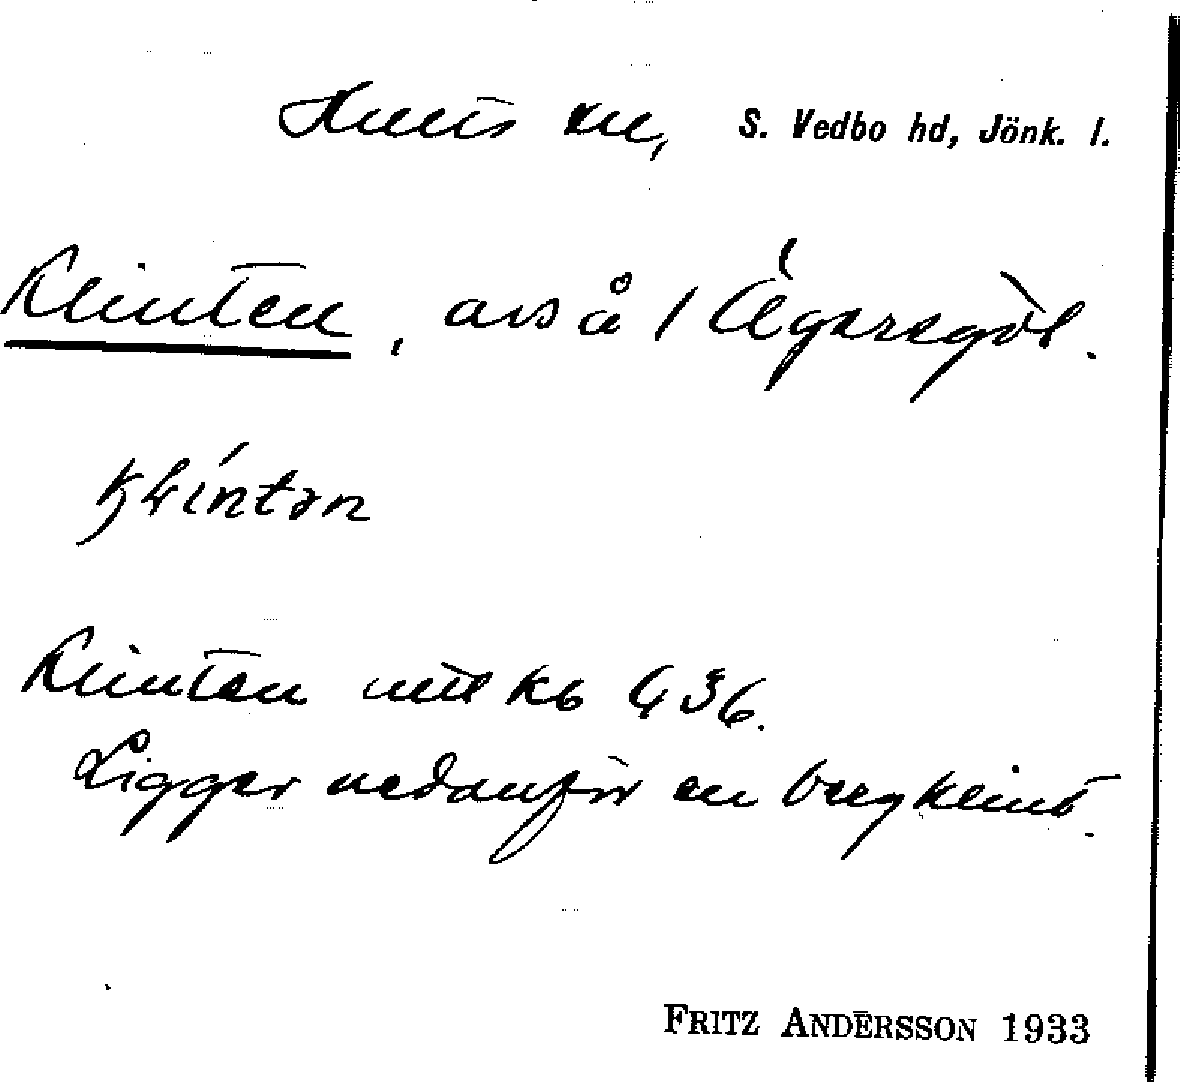 Hults sn, S. Vedbo hd, Jönk. l.
Klinten, avs å 1 Ägaregöl.
klintən
Klinten utl kb 436.
Ligger nedanför en bergklint.
FRITZ ANDERSSON 1933